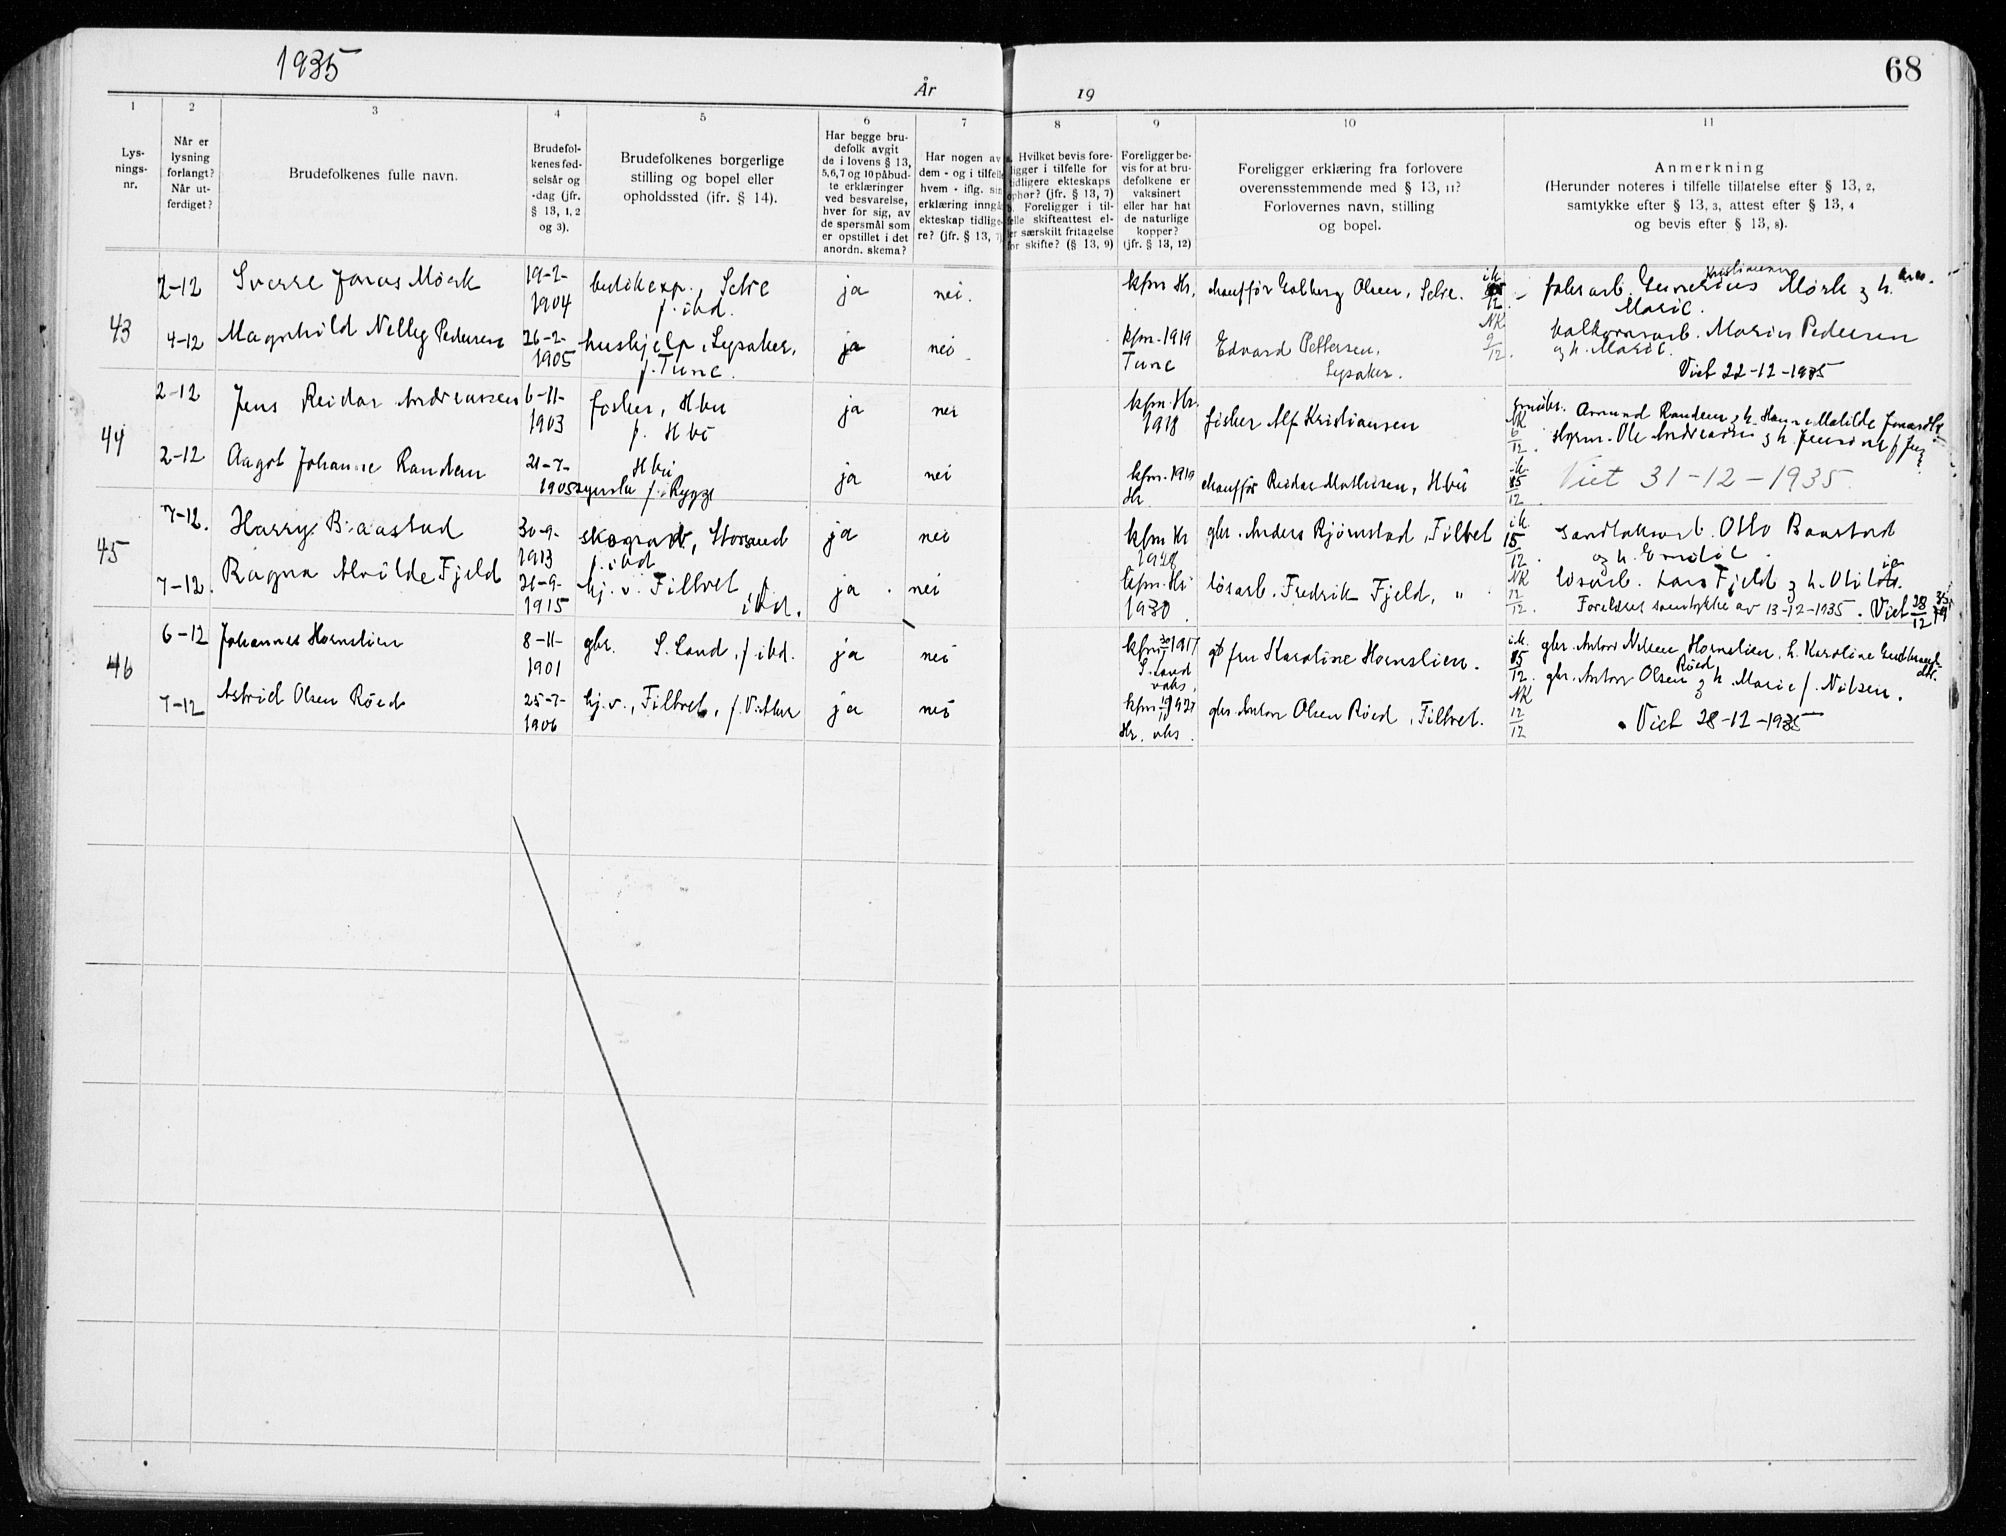 1935
År
19
68
1 2 3 4 5 6 7 8 9 10 11
Lys-
nings-
nr.
Når er
lysning
forlangt?
Når ut-
ferdiget?
Brudefolkenes fulle navn.
Brudefol-
kenes fød-
selsår og
-dag (jfr.
§ 13, 1, 2
og 3).
Brudefolkenes borgerlige
stilling og bopel eller
opholdssted (ifr. § 14).
Har begge bru-
defolk avgit
de i lovens § 13,
5, 6, 7 og 10 påbud-
te erklæringer
ved besvarelse,
hver for sig, av
de spørsmål som
er opstillet i det
anordn. skema?
Har nogen av
dem - og i tilfelle
hvem - iflg. sin
erklæring inngå
ekteskap tidlige-
re? (jfr. § 13, 7)
Hvilket bevis fore-
ligger i tilfelle for
tidligere ekteskaps
ophør? (jfr. § 13, 7)
Foreligger i til-
felle skifteattest el-
ler særskilt fritagelse
for skifte? (§ 13, 9)
Foreligger be-
vis for at bru-
defolkene er
vaksinert
eller har hat
de naturlige
kopper?
(jfr. § 13, 12)
Foreligger erklæring fra forlovere
overensstemmende med § 13, 11?
Forlovernes navn, stilling
og bopel.
Anmerkning
(Herunder noteres i tilfelle tillatelse efter § 13, 2,
samtykke efter § 13, 3, attest efter § 13, 4
og bevis efter § 13, 8).
43
2-12 Sverre Jonas Mörk 19-2-1904 butikexp., Selve f. ibd. ja nei. kfm Hr. chaufför Golberg Olsen, Selve. Mörk g h. Marie.
4-12 Magnhild Nelly Pedersen 26-2-1905 hushjelp, Lysaker, f. Tune. ja nei. kfm. 1919 Tune Edvard Pettersen, Lysaker. NK 9/12. Marius Pedersen og h. Marie.
Viet 22-12-1935
44
2-12 Jens Reidar Andreassen 6-11-1903 fisker, Hbu f. Hbu ja nei kfm. Hr. 1918 fisker Alf Kristiansen NK 6/12 Amund Randem g h. Hanna Matilde
2-12 Aagot Johanne Randem 21-7-1905 Hbu f. Rygge ja nei kfm. 1919 Hr chauffør Reidar Mathisen, Hbu ik 15/12
Viet 31-12-1935.
45
7-12. Harry Baastad 30-9-1913 Storsand f. ibd ja nei kfm Hr 1928 gbr. Anders Bjørnstad, Filtvet ik. 15/12. Otto Baastad og h. Emilie.
7-12. Ragna Alvilde Fjeld 21-9-1915 hj. v. Filtvet f. ibd. ja. nei kfm. Hr 1930. løsarb. Fredrik Fjeld, " NK 12/12. løsarb. Lars Fjeld g h.
Foreldres samtykke av 13-12-1935. Viet 28/12
46
6-12 Johannes Hornslien 8-11-1901 gbr. S. Land, f. ibd. ja nei kfm 1917 S. Land vaks. fru Karoline Hornslien. ik. 15/12. gbr. Anton Nilsen Hornslien, h. Karoline
7-12 Astrid Olsen Röed 25-7-1906 hj. v., Filtvet, ja nei kfm 1921 Hr. vaks. gbr. Anton Olsen Röed, Filtvet. NK 12/12 gbr. Anton Olsen Röed g h. Marie f. Nilsen.
Viet 28-12-1935